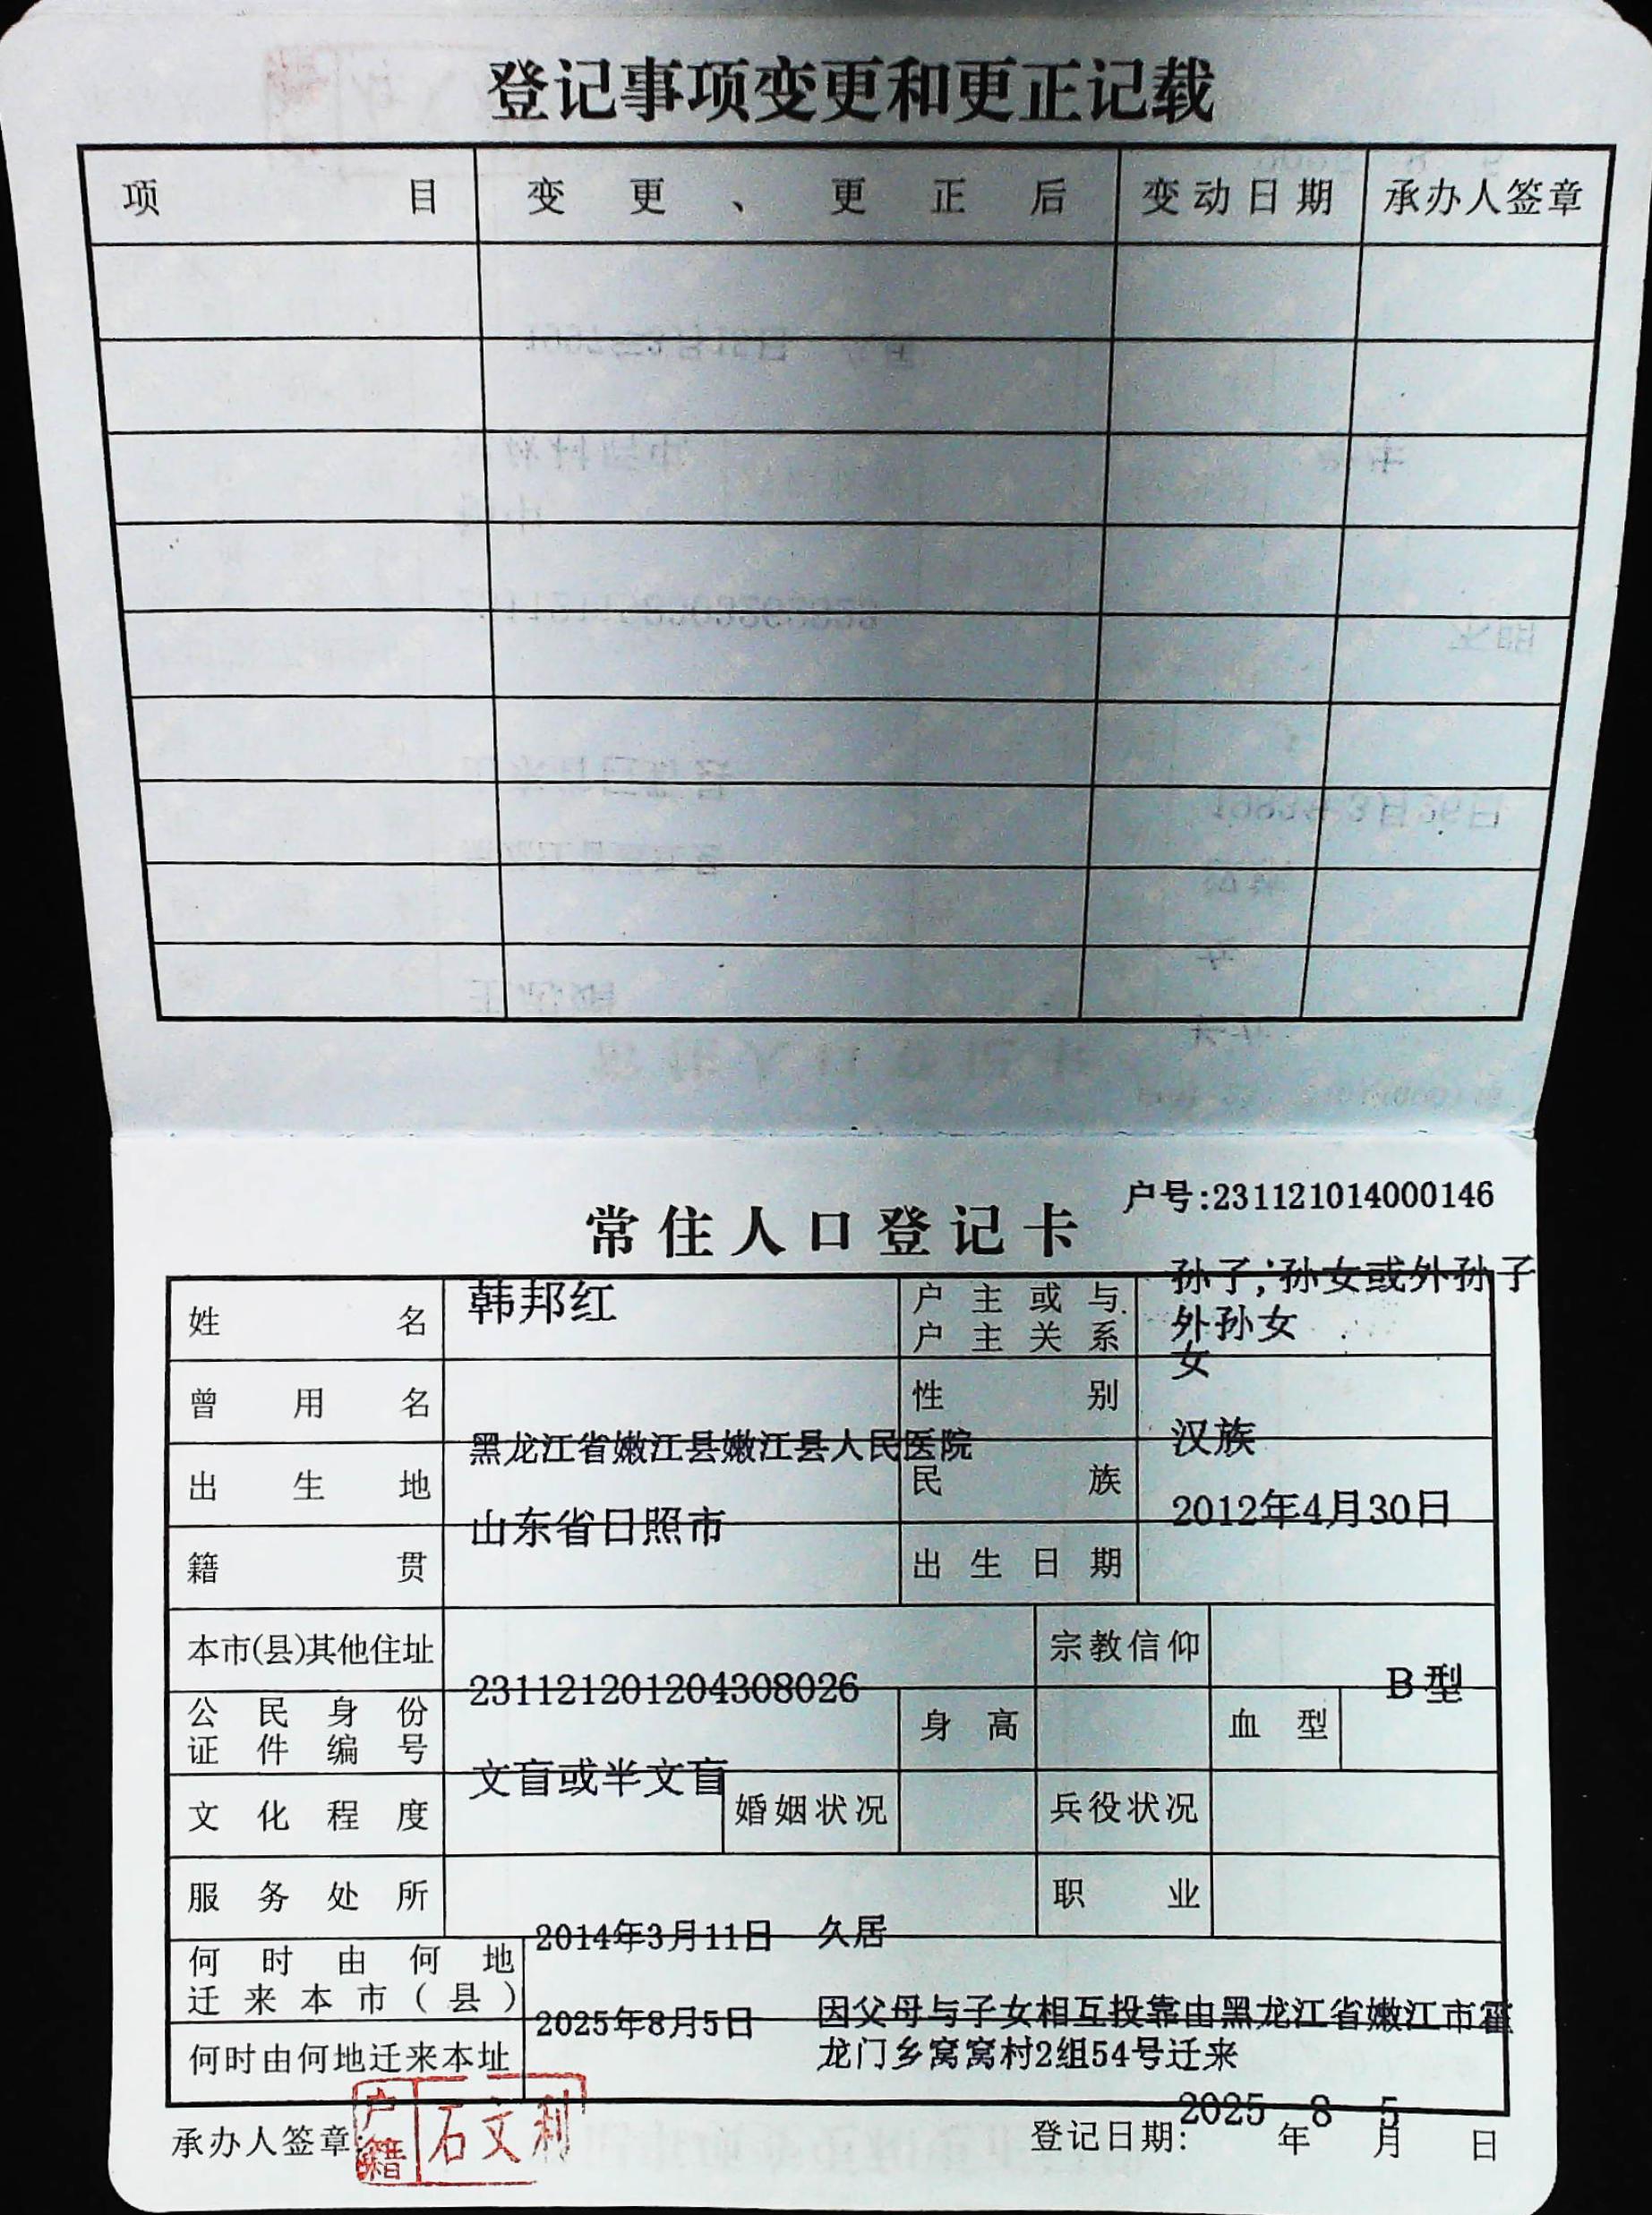 登记事项变更和更正记载
项目 变更、更正后 变动日期 承办人签章
户号:231121014000146
常住人口登记卡
姓名 韩邦红 户主或与户主关系 孙子;孙女或外孙子外孙女
曾用名 性别 女
出生地 黑龙江省嫩江县嫩江县人民医院 民族 汉族
籍贯 山东省日照市 出生日期 2012年4月30日
本市(县)其他住址 宗教信仰
公民身份证件编号 231121201204308026 身高 血型 B型
文化程度 文盲或半文盲 婚姻状况 兵役状况
服务处所 职业
何时由何地迁来本市(县) 2014年3月11日 久居
何时由何地迁来本址 2025年8月5日 因父母与子女相互投靠由黑龙江省嫩江市霍龙门乡窝窝村2组54号迁来
承办人签章: 户籍 石文利 登记日期: 2025年8月5日